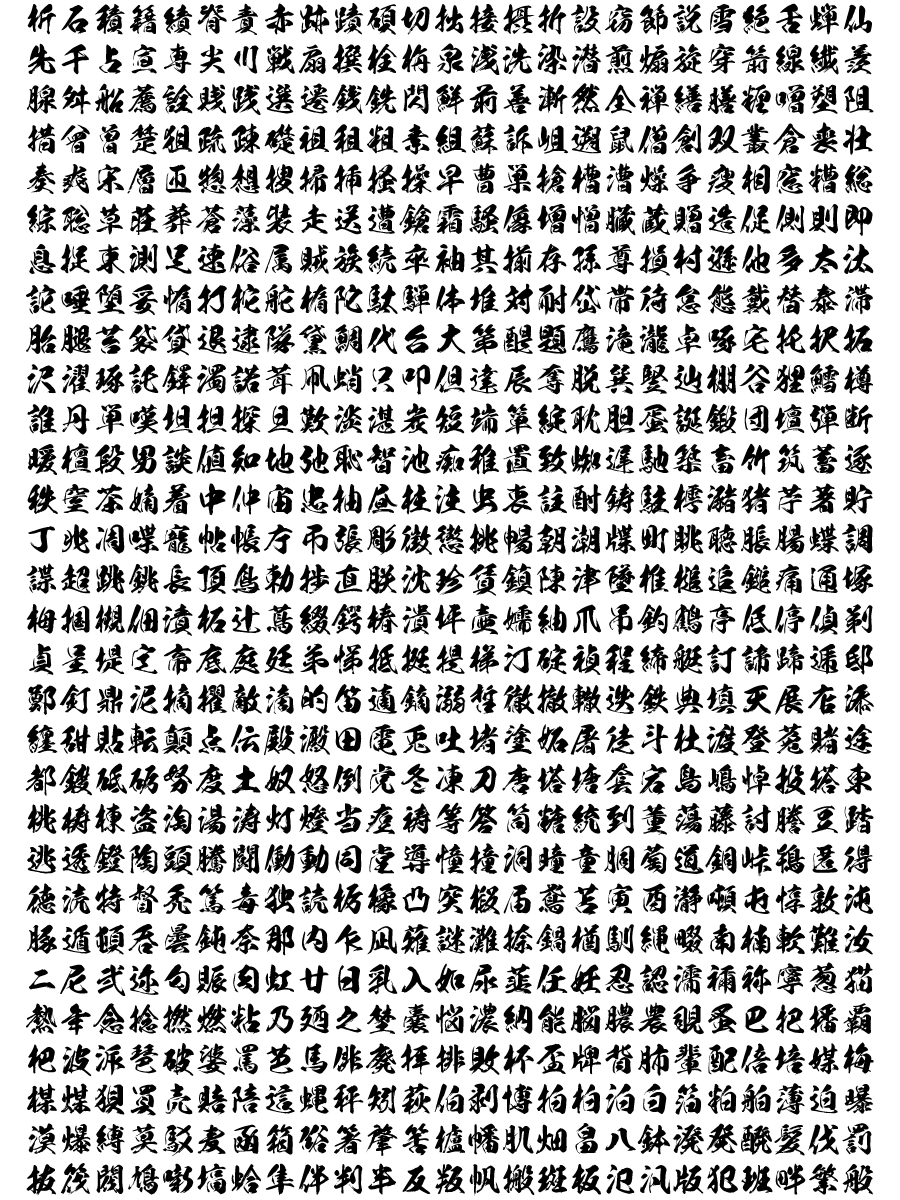 析石積籍績脊責赤跡蹟碩切拙接摂折設窃節説雪絶舌蝉仙
先千占宣専尖川戦扇撰栓栴泉浅洗染潜煎煽旋穿箭線繊羨
腺舛船薦詮賎践選遷銭銑閃鮮前善漸然全禅繕膳糎噌塑阻
措曾曽楚狙疏疎礎祖租粗素組蘇訴岨遡鼠僧創双叢倉喪壮
奏爽宋層匝惣想捜掃挿掻操早曹巣槍槽漕燥争痩相窓糟総
綜聡草荘葬蒼藻装走送遭鎗霜騒像増憎臓蔵贈造促側則即
息捉束測足速俗属賊族続卒袖其揃存孫尊損村遜他多太汰
詑唾堕妥惰打柁舵楕陀駄騨体堆対耐岱帯待怠態戴替泰滞
胎腿苔袋貸退逮隊黛鯛代台大第醍題鷹滝瀧卓啄宅托択拓
沢濯琢託鐸濁諾茸凧蛸只叩但達辰奪脱巽竪辿棚谷狸鱈樽
誰丹単嘆坦担探旦歎淡湛炭短端箪綻耽胆蛋誕鍛団壇弾断
暖檀段男談値知地弛恥智池痴稚置致蜘遅馳築畜竹筑蓄逐
秩窒茶嫡着中仲宙忠抽昼柱注虫衷註酎鋳駐樗瀦猪苧著貯
丁兆凋喋寵帖帳庁弔張彫徴懲挑暢朝潮牒町眺聴脹腸蝶調
諜超跳銚長頂鳥勅捗直朕沈珍賃鎮陳津墜椎槌追鎚痛通塚
栂掴槻佃漬柘辻蔦綴鍔椿潰坪壷嬬紬爪吊釣鶴亭低停偵剃
貞呈堤定帝底庭廷弟悌抵挺提梯汀碇禎程締艇訂諦蹄逓邸
鄭釘鼎泥摘擢敵滴的笛適鏑溺哲徹撤轍迭鉄典填天展店添
纏甜貼転顛点伝殿澱田電兎吐堵塗妬屠徒斗杜渡登菟賭途
都鍍砥砺努度土奴怒倒党冬凍刀唐塔塘套宕島嶋悼投搭東
桃梼棟盗淘湯涛灯燈当痘祷等答筒糖統到董蕩藤討謄豆踏
逃透鐙陶頭騰闘働動同堂導憧撞洞瞳童胴萄道銅峠鴇匿得
徳涜特督禿篤毒独読栃橡凸突椴届鳶苫寅酉瀞噸屯惇敦沌
豚遁頓呑曇鈍奈那内乍凪薙謎灘捺鍋楢馴縄畷南楠軟難汝
二尼弐迩匂賑肉虹廿日乳入如尿韮任妊忍認濡禰祢寧葱猫
熱年念捻撚燃粘乃廼之埜嚢悩濃納能脳膿農覗蚤巴把播覇
杷波派琶破婆罵芭馬俳廃拝排敗杯盃牌背肺輩配倍培媒梅
楳煤狽買売賠陪這蝿秤矧萩伯剥博拍柏泊白箔粕舶薄迫曝
漠爆縛莫駁麦函箱硲箸肇筈櫨幡肌畑畠八鉢溌発醗髪伐罰
抜筏閥鳩噺塙蛤隼伴判半反叛帆搬斑板氾汎版犯班畔繁般